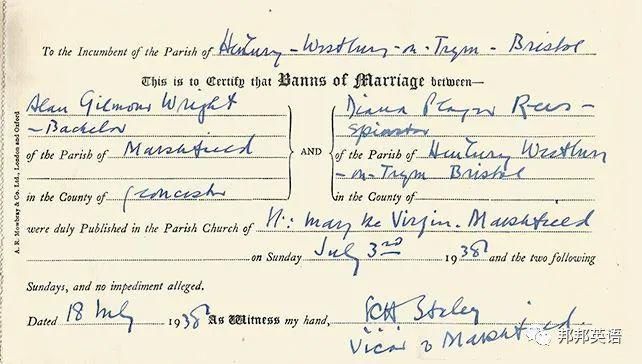 To the Incumbent of the Parish of Henbury - Westbury - on - Trym - Bristol
This is to Certify that Banns of Marriage between—
Alan Gilmour Wright
- Bachelor
of the Parish of Marshfield
in the County of Gloucester
AND
Diana Player Rees -
Spinster
of the Parish of Henbury Westbury
- on - Trym Bristol
in the County of
were duly Published in the Parish Church of St: Mary the Virgin. Marshfield
on Sunday July 3rd 1938 and the two following
Sundays, and no impediment alleged.
Dated 18 July 1938 As Witness my hand, Staley
Vicar of Marshfield.
A. R. Mowbray & Co. Ltd., London and Oxford
邦邦英语